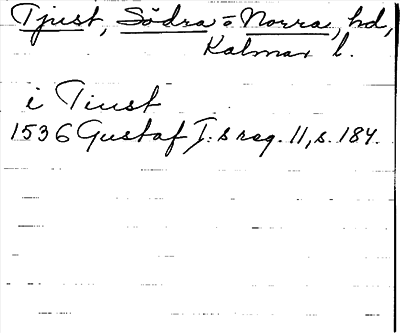 Tjust, Södra o. Norra, hd,
Kalmar l.
i Tiust
1536 Gustaf I:s reg. 11, s. 184.